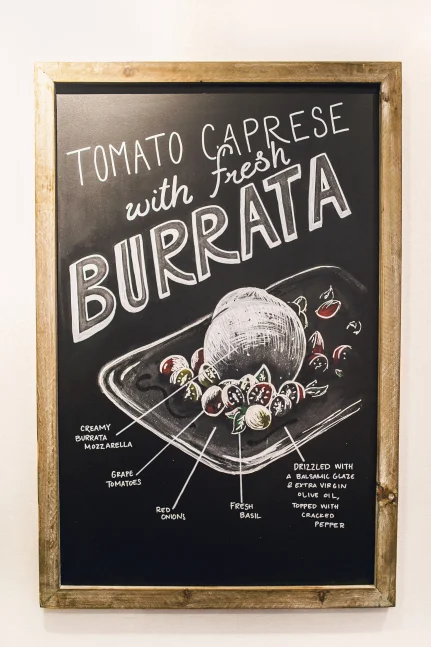 TOMATO CAPRESE
with fresh
BURRATA
CREAMY
BURRATA
MOZZARELLA
GRAPE
TOMATOES
RED
ONIONS
FRESH
BASIL
DRIZZLED WITH
A BALSAMIC GLAZE
& EXTRA VIRGIN
OLIVE OIL,
TOPPED WITH
CRACKED
PEPPER